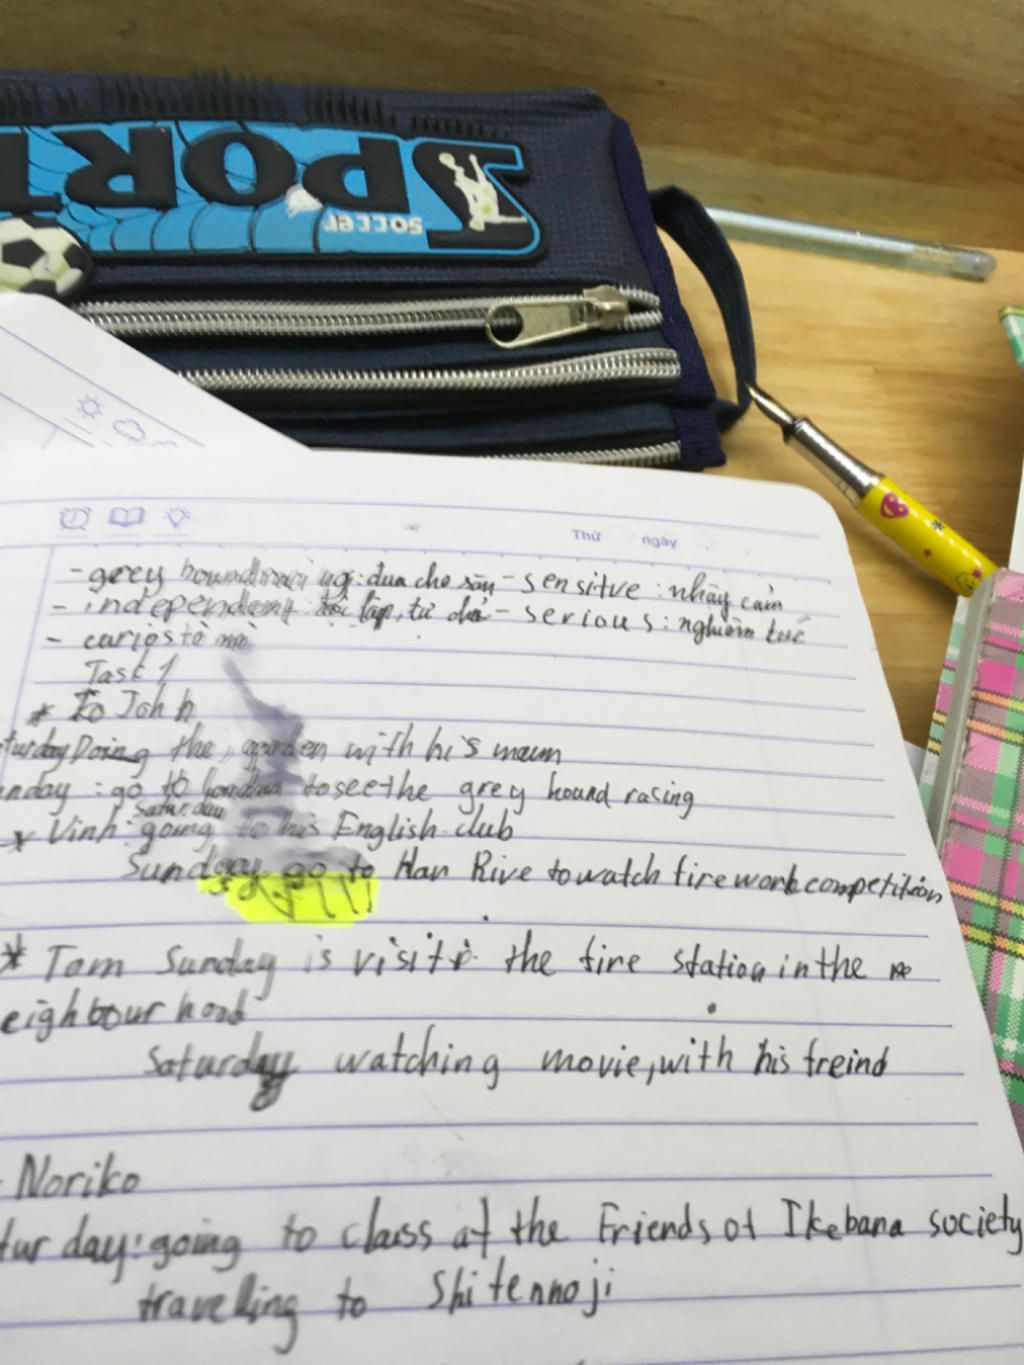 SPORT
soccer
Thứ ngày
- grey hound racing: đua chó săn - sensitve: nhạy cảm
- independent: độc lập, tự chủ - serious: nghiêm túc
- curios tò mò
Task 1
* John
turday Doing the garden with his mum
nday: go to London to see the grey hound racing
Saturday
* Vinh: going to his English club
Sunday go to Han Rive to watch firework competition
* Tom Sunday is visit the fire station in the
eighbourhood
Saturday watching movie, with his freind
Noriko
tur day: going to class at the Friends of Ikebana society
travelling to Shitennoji